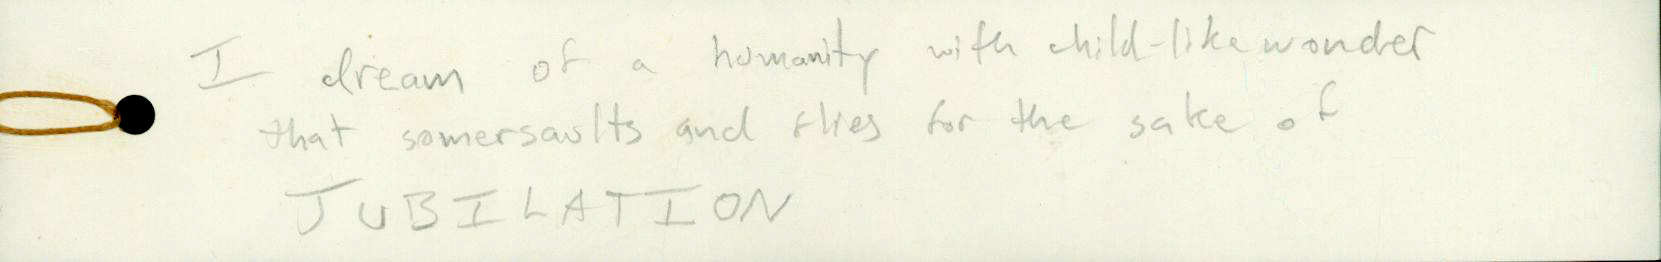 I dream of a humanity with child-like wonder
that somersaults and flies for the sake of
JUBILATION